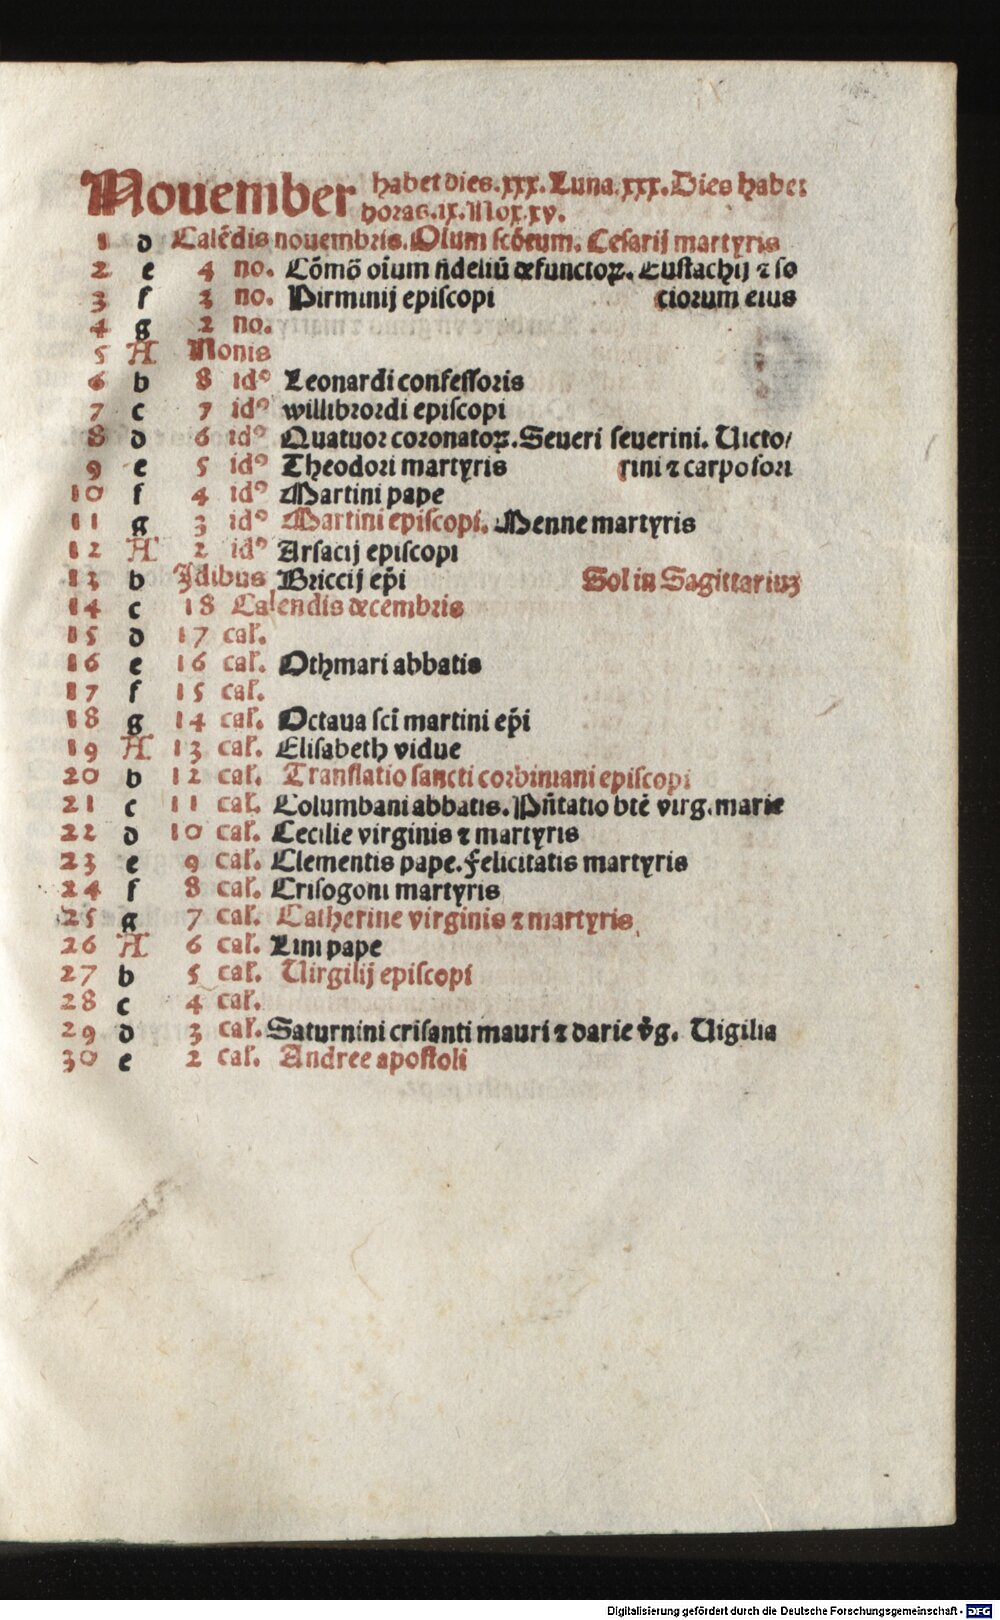 Nouember habet dies.xxx.Luna.xxx.Dies habet
horas.ix.Nox.xv.
1 d Calēdis nouembris.Oīum scōrum. Cesarij martyris
2 e 4 no. Cōmō oīum fideliū defunctoꝝ. Eustachij ⁊ so
3 f 3 no. Pirminij episcopi ciorum eius
4 g 2 no.
5 A Nonis
6 b 8 idꝰ Leonardi confessoris
7 c 7 idꝰ willibrordi episcopi
8 d 6 idꝰ Quatuor coronatoꝝ.Seueri seuerini. Uicto/
9 e 5 idꝰ Theodori martyris rini ⁊ carpofori
10 f 4 idꝰ Martini pape
11 g 3 idꝰ Martini episcopi. Menne martyris
12 A 2 idꝰ Arsacij episcopi
13 b Idibus Briccij ep̄i Sol in Sagittariuz
14 c 18 Calendis decembris
15 d 17 cal̄.
16 e 16 cal̄. Othmari abbatis
17 f 15 cal̄.
18 g 14 cal̄. Octaua scī martini ep̄i
19 A 13 cal̄. Elisabeth vidue
20 b 12 cal̄. Translatio sancti corbiniani episcopi
21 c 11 cal̄. Columbani abbatis. Pn̄tatio btē virg. marie
22 d 10 cal̄. Cecilie virginis ⁊ martyris
23 e 9 cal̄. Clementis pape. Felicitatis martyris
24 f 8 cal̄. Crisogoni martyris
25 g 7 cal̄. Catherine virginis ⁊ martyris
26 A 6 cal̄. Lini pape
27 b 5 cal̄. Uirgilij episcopi
28 c 4 cal̄.
29 d 3 cal̄. Saturnini crisanti mauri ⁊ darie v̄g. Uigilia
30 e 2 cal̄. Andree apostoli
Digitalisierung gefördert durch die Deutsche Forschungsgemeinschaft - DFG